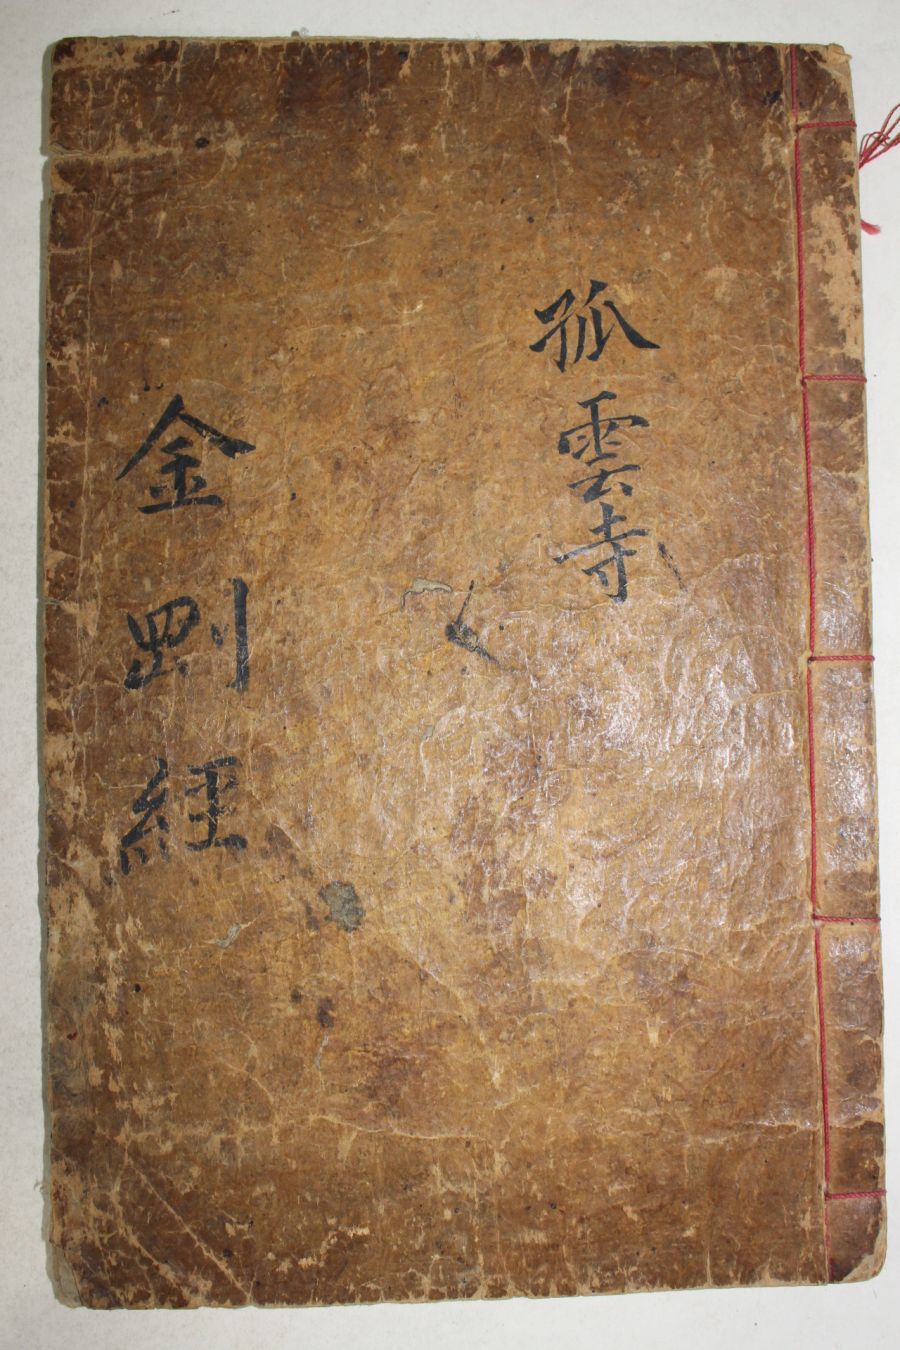 孤雲寺
金剛經